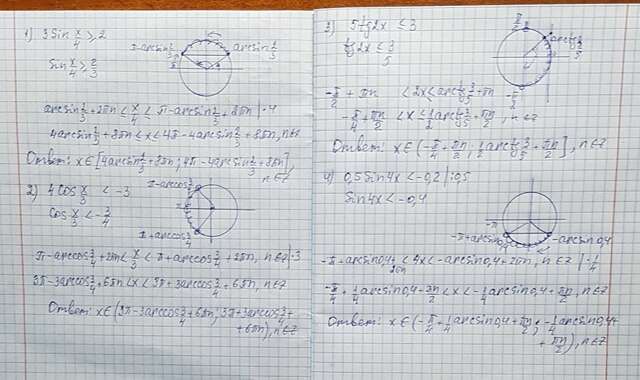 1) 3 sin x/4 ≥ 2
sin x/4 ≥ 2/3
π-arcsin 2/3
arcsin 2/3
arcsin 2/3 + 2πn ≤ x/4 ≤ π - arcsin 2/3 + 2πn | ·4
4arcsin 2/3 + 8πn ≤ x ≤ 4π - 4arcsin 2/3 + 8πn, n∈Z
Ответ: x∈[4arcsin 2/3 + 8πn; 4π - 4arcsin 2/3 + 8πn],
n∈Z
2) 4cos x/3 < -3
cos x/3 < -3/4
π-arccos 3/4
π+arccos 3/4
π - arccos 3/4 + 2πn < x/3 < π + arccos 3/4 + 2πn, n∈Z | ·3
3π - 3arccos 3/4 + 6πn < x < 3π + 3arccos 3/4 + 6πn, n∈Z
Ответ: x∈(3π - 3arccos 3/4 + 6πn; 3π + 3arccos 3/4 +
+ 6πn), n∈Z
3) 5tg2x ≤ 3
tg2x ≤ 3/5
π/2
arctg 3/5
-π/2
-π/2 + πn < 2x ≤ arctg 3/5 + πn
-π/4 + πn/2 < x ≤ 1/2 arctg 3/5 + πn/2, n∈Z
Ответ: x∈(-π/4 + πn/2; 1/2 arctg 3/5 + πn/2], n∈Z
4) 0,5sin4x < -0,2 | :0,5
sin4x < -0,4
-π
-π+arcsin0,4
-arcsin0,4
-π + arcsin0,4 + 2πn < 4x < -arcsin0,4 + 2πn, n∈Z | ·1/4
-π/4 + 1/4 arcsin0,4 + πn/2 < x < -1/4 arcsin0,4 + πn/2, n∈Z
Ответ: x∈(-π/4 + 1/4 arcsin0,4 + πn/2; -1/4 arcsin0,4 +
+ πn/2), n∈Z